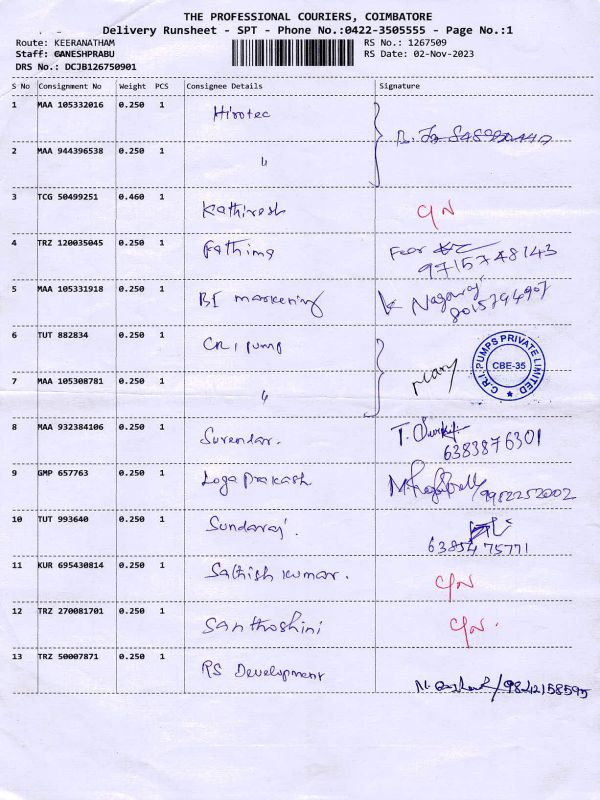 THE PROFESSIONAL COURIERS, COIMBATORE
Delivery Runsheet - SPT - Phone No.:0422-3505555 - Page No.:1
Route: KEERANATHAM RS No.: 1267509
Staff: GANESHPRABU RS Date: 02-Nov-2023
DRS No.: DCJB126750901
S No Consignment No Weight PCS Consignee Details Signature
1 MAA 105332016 0.250 1 Hirotec
2 MAA 944396538 0.250 1 "
3 TCG 50499251 0.460 1 Kathiresh C/N
4 TRZ 120035045 0.250 1 Fathima
9715748143
5 MAA 105331918 0.250 1 BI marketing K Nagaraj
8015794907
6 TUT 882834 0.250 1 CRI pump
C.R.I. PUMPS PRIVATE LIMITED
CBE-35
7 MAA 105308781 0.250 1 "
8 MAA 932384106 0.250 1 Surendar.
6383876301
9 GMP 657763 0.250 1 Loga Prakash 9952252002
10 TUT 993640 0.250 1 Sundaraj.
6385475771
11 KUR 695430814 0.250 1 Sathish kumar. C/N
12 TRZ 270081701 0.250 1 Santhoshini C/N.
13 TRZ 50007871 0.250 1 RS Development
9842158595